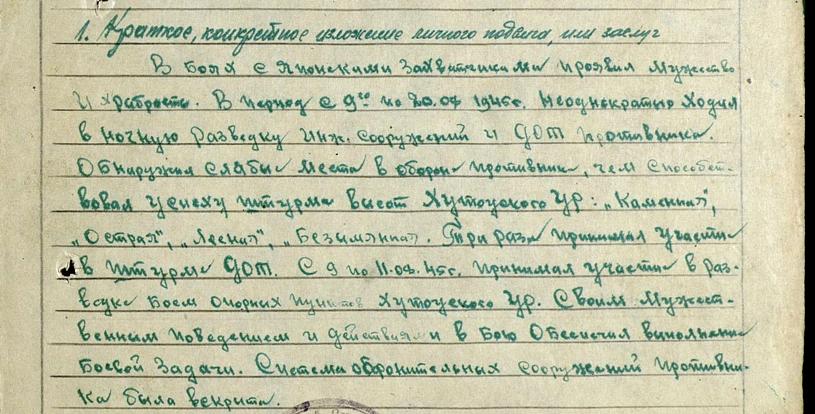 1. Краткое, конкретное изложение личного подвига, или заслуг
В боях с Японскими захватчиками проявил мужество
и храбрость. В период с 9го по 20.08 1945г. неоднократно ходил
в ночную разведку инж. сооружений и ДОТ противника.
Обнаружил слабые места в обороне противника, чем способст-
вовал успеху штурма высот Хутоуского УР: „Каменная",
„Острая", „Лесная", „Безымянная". Три раза принимал участие
в штурме ДОТ. С 9 по 11.08.45г. принимал участие в раз-
ведке боем опорных пунктов Хутоуского Ур. Своим мужест-
венным поведением и действиями в бою обеспечил выполнение
боевой задачи. Система оборонительных сооружений противни-
ка была вскрыта.